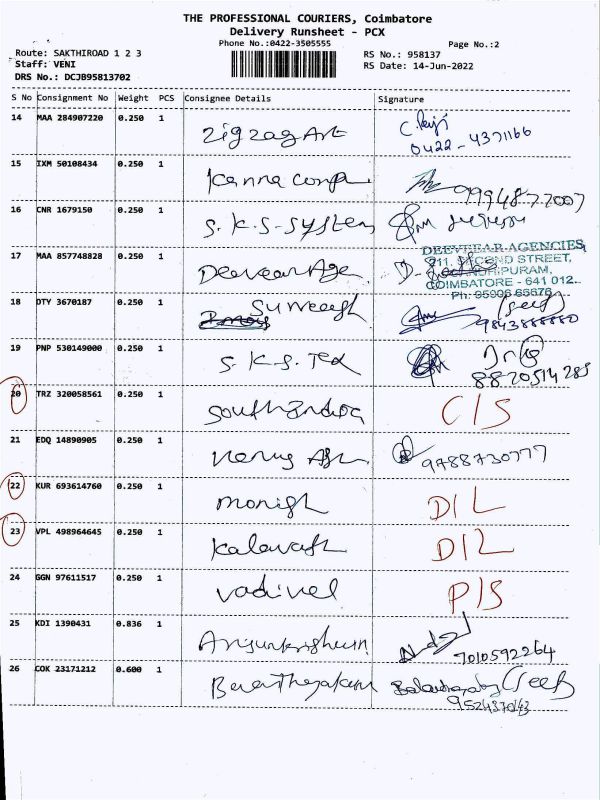 THE PROFESSIONAL COURIERS, Coimbatore
Delivery Runsheet - PCX
Phone No.:0422-3505555
Page No.:2
Route: SAKTHIROAD 1 2 3
Staff: VENI
DRS No.: DCJB95813702
RS No.: 958137
RS Date: 14-Jun-2022
S No Consignment No Weight PCS Consignee Details Signature
14 MAA 284907220 0.250 1 Zigzag Art
0422-4371166
15 IXM 50108434 0.250 1 Kanna Comp 9994877007
16 CNR 1679150 0.250 1 S.K.S-System
17 MAA 857748828 0.250 1 Deevear Age
DEEVEEAR AGENCIES,
211, SECOND STREET,
COIMBATORE - 641 012.
18 DTY 3670187 0.250 1 Sumeegh
(Seef)
9843888880
19 PNP 530149000 0.250 1 S.K.S. Tex
8820514285
20 TRZ 320058561 0.250 1 South India C/S
21 EDQ 14890905 0.250 1 9788730777
22 KUR 693614760 0.250 1 Monish D/L
23 VPL 498964645 0.250 1 D/L
24 GGN 97611517 0.250 1 Vadivel P/S
25 KDI 1390431 0.836 1
7010592264
26 COK 23171212 0.600 1
9524870143